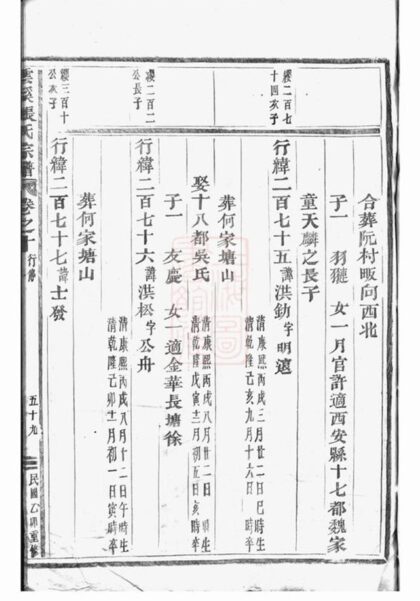 合葬阮村畈向西北
子一 羽𤟹 女一月官許適西安縣十七都魏家
童天麟之長子
纓二百七十四次子
行緯二百七十五諱洪勛字明遠
清康熙丙戌三月廿二日巳時生
清乾隆己亥九月十六日 時卒
葬何家塘山
娶十八都吳氏
清康熙丙戌八月廿二日 時生
清乾隆戊寅十二月初五日亥時卒
子一 友慶 女一適金華長塘徐
纓二百二公長子
行緯二百七十六諱洪松字公舟
清康熙丙戌八月廿二日午時生
清乾隆己卯十二月初一日寅時卒
葬何家塘山
纓三百十公次子
行緯二百七十七諱士發
雲溪張氏宗譜 卷之十 行傳 五十九 民國乙卯重修